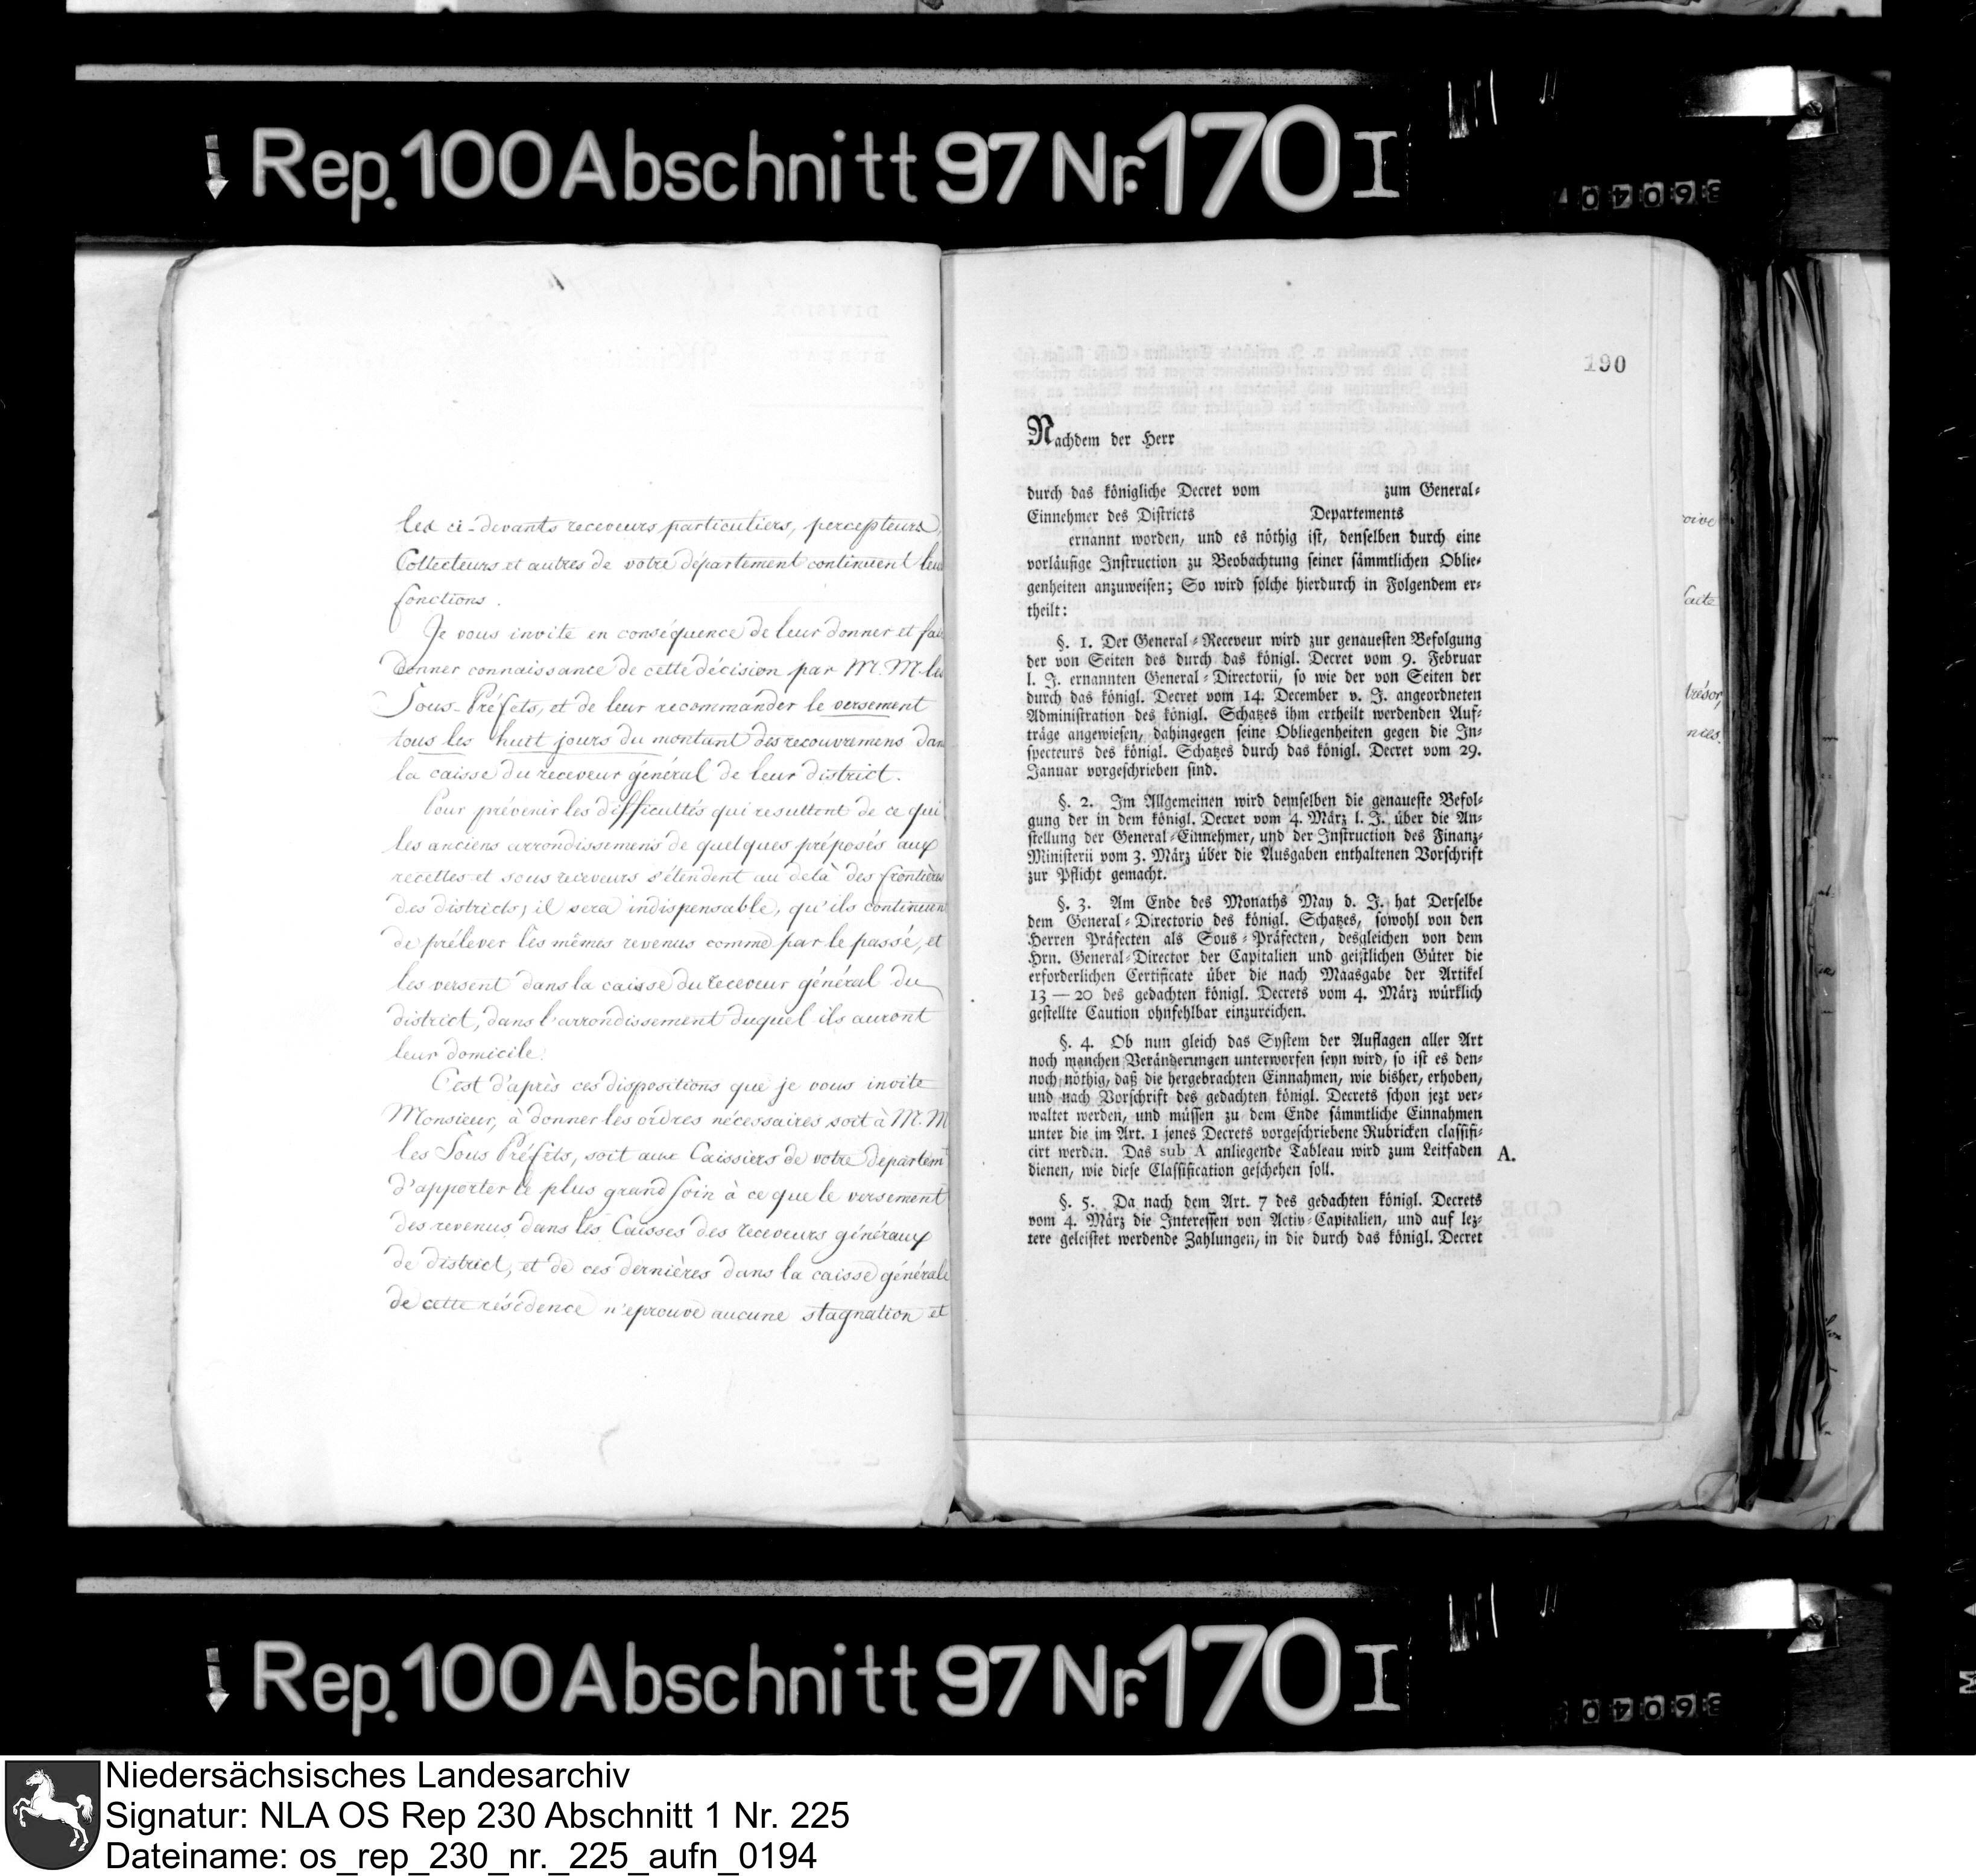 Rep. 100 Abschnitt 97 Nr. 170 I
les ci-devants receveurs particuliers, percepteurs,
Collecteurs et autres de votre département continuent leu
fonctions.
Je vous invite en conséquence de leur donner et fai
donner connaissance de cette décision par M. M. les
Sous-Préfets, et de leur recommander le versement
tous les huit jours du montant des recouvremens dan
la caisse du receveur général de leur district.
Pour prévenir les difficultés qui resultent de ce qui
les anciens arrondissemens de quelques préposés aux
recettes et sous receveurs s'étendent au delà des frontières
des districts, il sera indispensable, qu'ils continuen
de prélever les mêmes revenus comme par le passé, et
les versent dans la caisse du receveur général du
district, dans l'arrondissement duquel ils auront
leur domicile.
C'est d'après ces dispositions que je vous invite
Monsieur, à donner les ordres nécessaires soit à M. M
les Sous Préfets, soit aux Caissiers de votre départem
d'apporter le plus grand soin à ce que le versement
des revenus dans les Caisses des receveurs généraux
de district, et de ces dernières dans la caisse générale
de cette résidence n'eprouve aucune stagnation et
190
Nachdem der Herr
durch das königliche Decret vom zum General-
Einnehmer des Districts Departements
ernannt worden, und es nöthig ist, denselben durch eine
vorläufige Instruction zu Beobachtung seiner sämmtlichen Oblie-
genheiten anzuweisen; So wird solche hierdurch in Folgendem er-
theilt:
§. 1. Der General-Receveur wird zur genauesten Befolgung
der von Seiten des durch das königl. Decret vom 9. Februar
l. J. ernannten General-Directorii, so wie der von Seiten der
durch das königl. Decret vom 14. December v. J. angeordneten
Administration des königl. Schatzes ihm ertheilt werdenden Auf-
träge angewiesen, dahingegen seine Obliegenheiten gegen die In-
specteurs des königl. Schatzes durch das königl. Decret vom 29.
Januar vorgeschrieben sind.
§. 2. Im Allgemeinen wird demselben die genaueste Befol-
gung der in dem königl. Decret vom 4. März l. J. über die An-
stellung der General-Einnehmer, und der Instruction des Finanz-
Ministerii vom 3. März über die Ausgaben enthaltenen Vorschrift
zur Pflicht gemacht.
§. 3. Am Ende des Monaths May d. J. hat Derselbe
dem General-Directorio des königl. Schatzes, sowohl von den
Herren Präfecten als Sous-Präfecten, desgleichen von dem
Hrn. General-Director der Capitalien und geistlichen Güter die
erforderlichen Certificate über die nach Maasgabe der Artikel
13 — 20 des gedachten königl. Decrets vom 4. März würklich
gestellte Caution ohnfehlbar einzureichen.
§. 4. Ob nun gleich das System der Auflagen aller Art
noch manchen Veränderungen unterworfen seyn wird, so ist es den-
noch nöthig, daß die hergebrachten Einnahmen, wie bisher, erhoben,
und nach Vorschrift des gedachten königl. Decrets schon jezt ver-
waltet werden, und müssen zu dem Ende sämmtliche Einnahmen
unter die im Art. 1 jenes Decrets vorgeschriebene Rubricken classifi-
cirt werden. Das sub A anliegende Tableau wird zum Leitfaden
A.
dienen, wie diese Classification geschehen soll.
§. 5. Da nach dem Art. 7 des gedachten königl. Decrets
vom 4. März die Interessen von Activ-Capitalien, und auf lez-
tere geleistet werdende Zahlungen, in die durch das königl. Decret
Rep. 100 Abschnitt 97 Nr. 170 I
Niedersächsisches Landesarchiv
Signatur: NLA OS Rep 230 Abschnitt 1 Nr. 225
Dateiname: os_rep_230_nr._225_aufn_0194